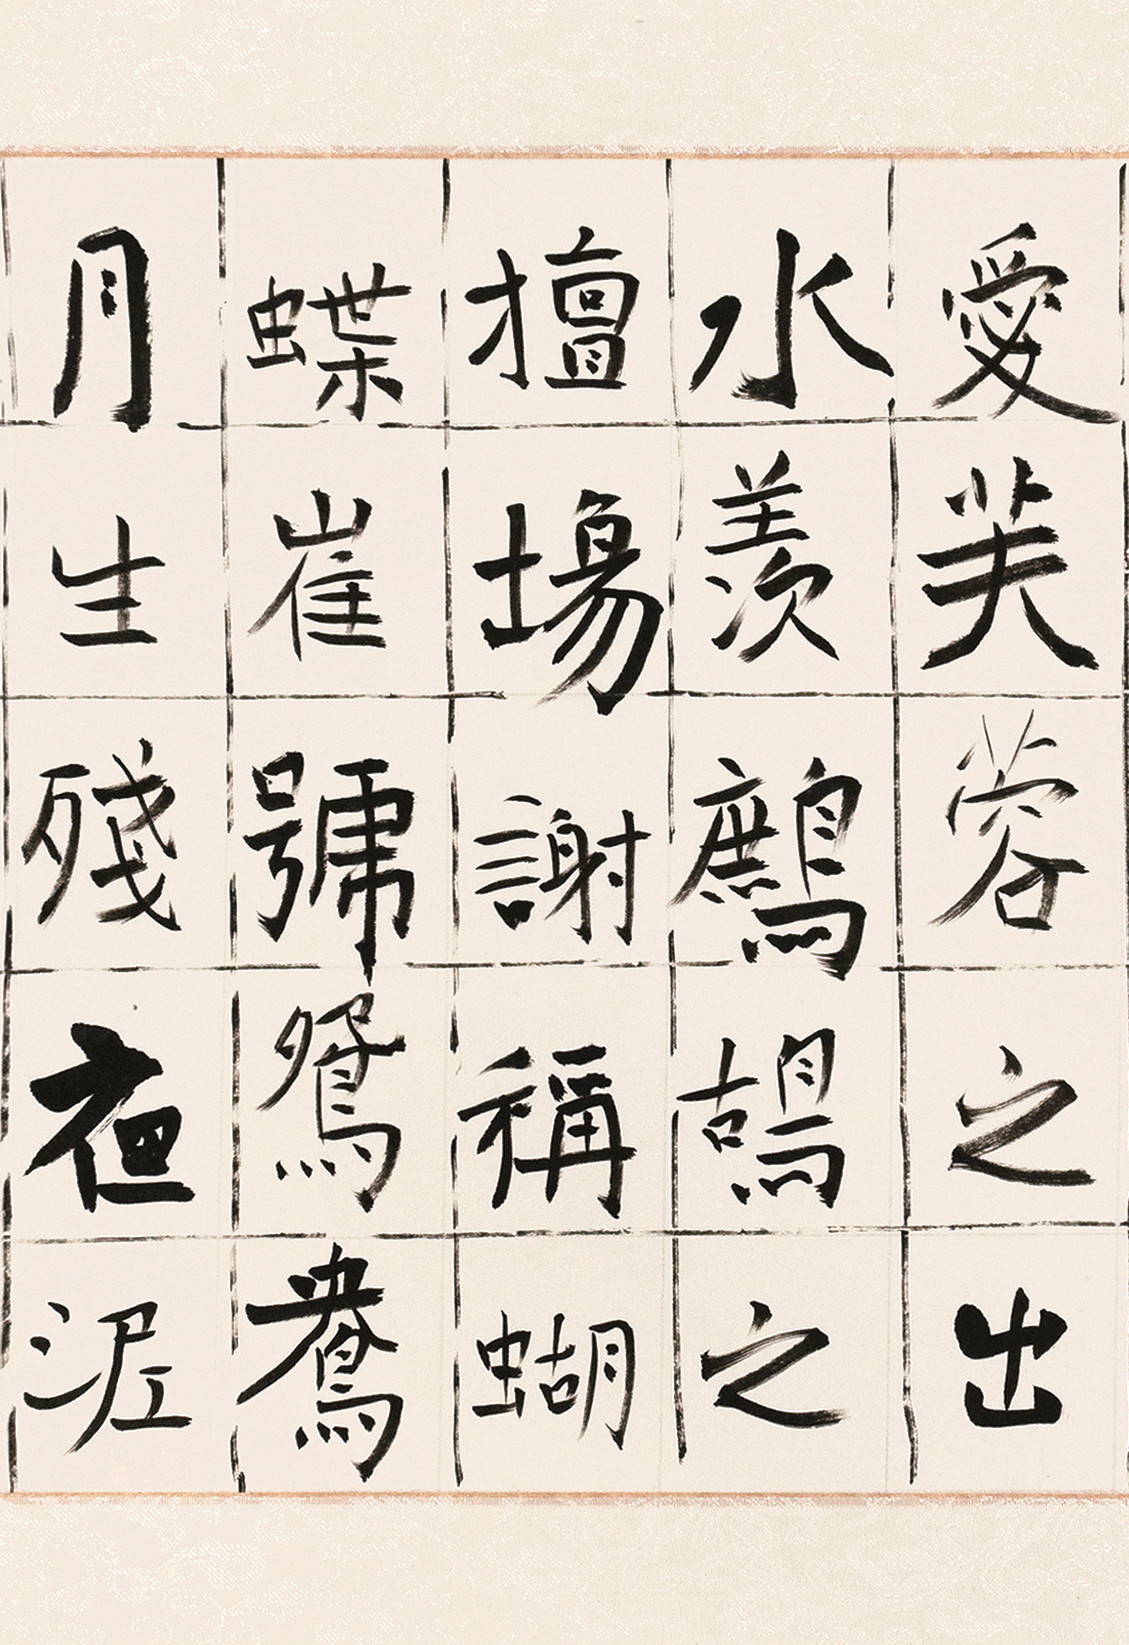 愛芙蓉之出
水羨鷓鴣之
擅場謝稱蝴
蝶崔號鴛鴦
月生殘夜泥